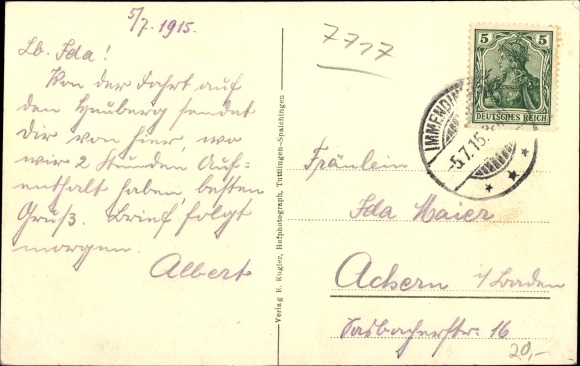 5/7. 1915.
Lb. Ida!
Von der Fahrt auf
den Heuberg sendet
Dir von hier, wo
wir 2 Stunden Auf-
enthalt haben, besten
Gruß. Brief folgt
morgen.
Albert
Verlag B. Kugler, Hofphotograph, Tuttlingen-Spaichingen
7777
5 5
DEUTSCHES REICH
IMMENDIN
-5.7.15.
Fräulein
Ida Maier
Achern i/Baden
Sasbacherstr. 16
20,-